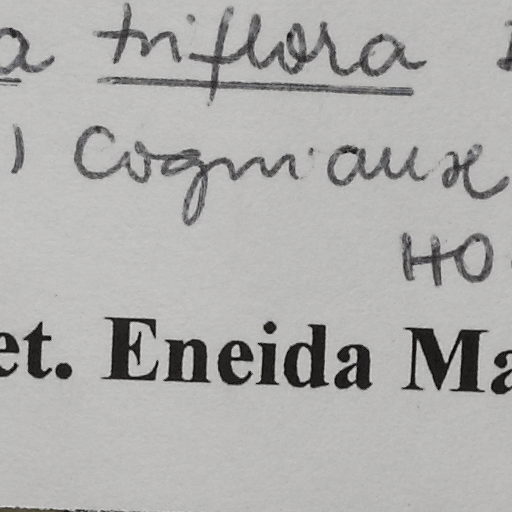 a triflora
) Cogniaux
HO
et. Eneida Ma